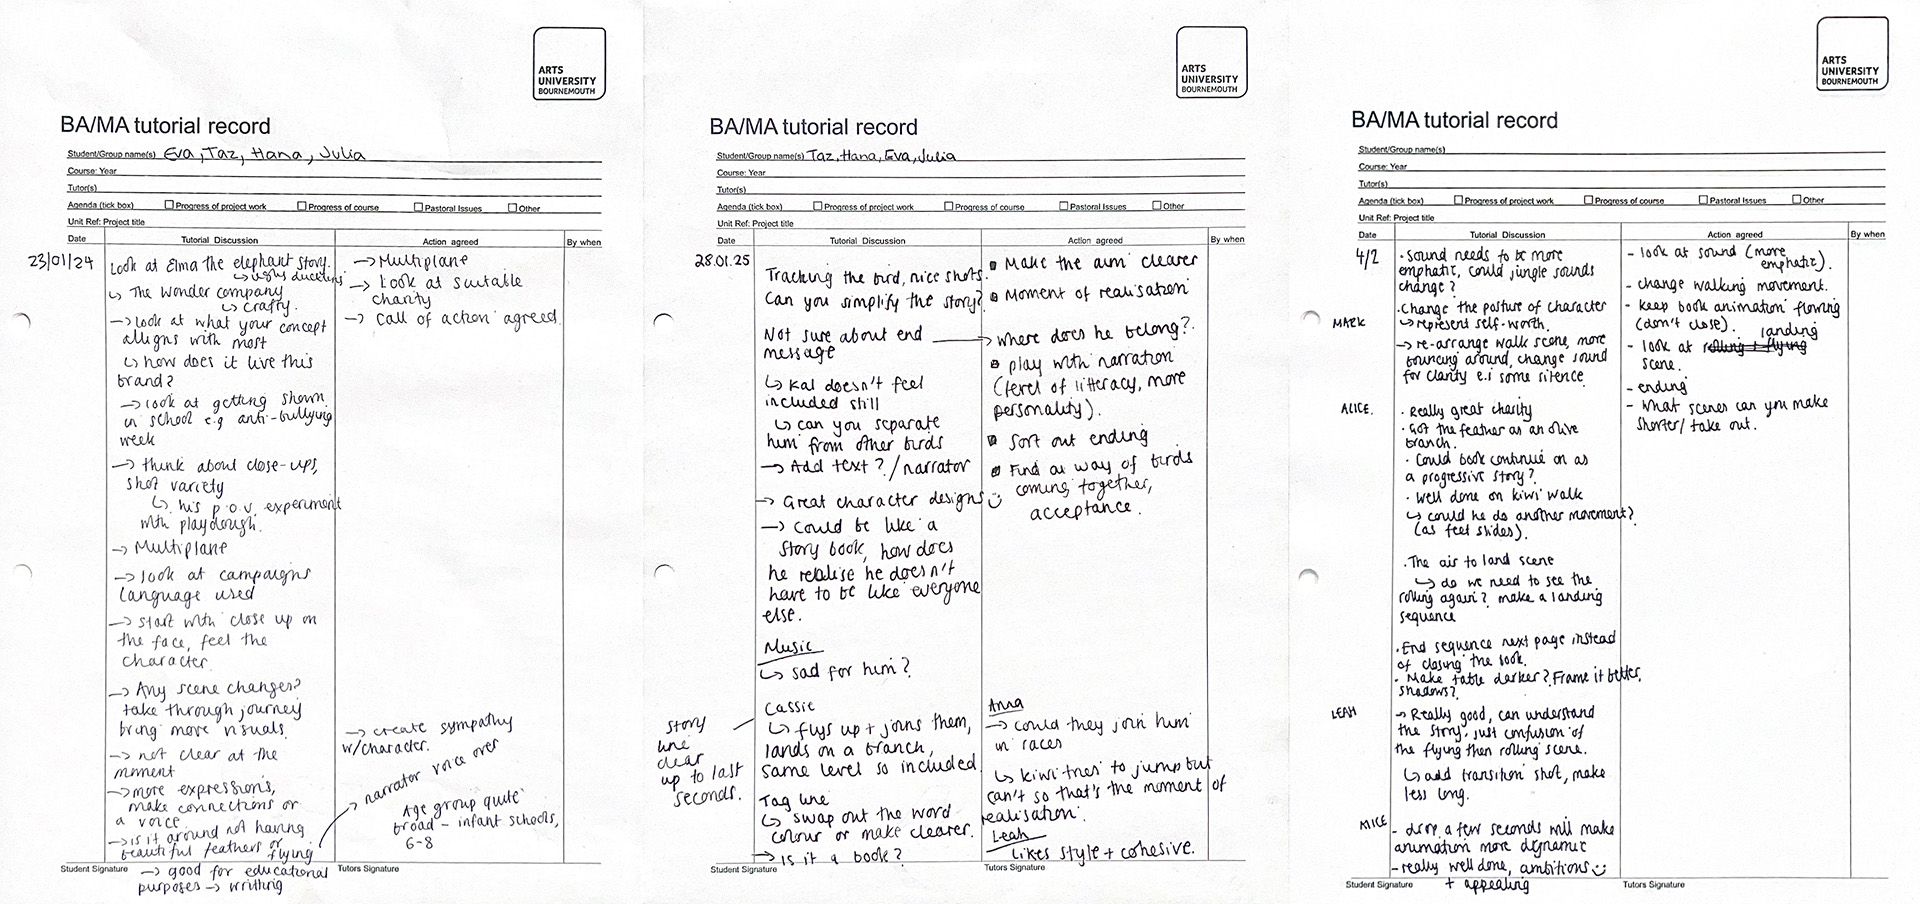 ARTS
UNIVERSITY
BOURNEMOUTH
BA/MA tutorial record
Student/Group name(s) Eva, Taz, Hana, Julia
Course: Year
Tutor(s)
Agenda (tick box) Progress of project work Progress of course Pastoral Issues Other
Unit Ref: Project title
Date Tutorial Discussion Action agreed By when
23/01/24
Look at Elma the elephant story.
↳ ugly duckling
↳ The Wonder company
↳ crafty.
→ look at what your concept
alligns with most
↳ how does it live this
brand?
→ look at getting shown
in school e.g anti-bullying
week
→ think about close-ups,
shot variety
↳ his p.o.v. experiment
with playdough.
→ Multiplane
→ look at campaigns
language used
→ start with close up on
the face, feel the
character.
→ Any scene changes?
take through journey
bring more visuals.
→ not clear at the
moment
→ more expressions,
make connections or
a voice
→ is it around not having
beautiful feathers or
flying
→ good for educational
purposes → writing
→ Multiplane
→ Look at suitable
charity
→ call of action agreed.
→ create sympathy
w/character.
narrator voice over
Age group quite
broad - infant schools,
6-8
Student Signature Tutors Signature
ARTS
UNIVERSITY
BOURNEMOUTH
BA/MA tutorial record
Student/Group name(s) Taz, Hana, Eva, Julia
Course: Year
Tutor(s)
Agenda (tick box) Progress of project work Progress of course Pastoral Issues Other
Unit Ref: Project title
Date Tutorial Discussion Action agreed By when
28.01.25
Tracking the bird, nice shots.
Can you simplify the story?
Not sure about end
message
↳ Kal doesn't feel
included still
↳ can you separate
him from other birds
→ Add text? / narrator
→ Great character designs ☺
→ Could be like a
story book, how does
he realise he doesn't
have to be like everyone
else.
Music
↳ sad for him?
story
line
clear
up to last
seconds.
Cassie
↳ flys up + joins them,
lands on a branch,
same level so included.
Tag line
↳ swap out the word
colour or make clearer.
→ is it a book?
Make the aim clearer
Moment of realisation
→ where does he belong?
play with narration
(level of litteracy, more
personality).
Sort out ending
Find a way of birds
coming together,
acceptance.
Anna
→ could they join him
in races
↳ kiwi tries to jump but
can't so that's the moment of
realisation.
Leah
likes style + cohesive.
Student Signature Tutors Signature
ARTS
UNIVERSITY
BOURNEMOUTH
BA/MA tutorial record
Student/Group name(s)
Course: Year
Tutor(s)
Agenda (tick box) Progress of project work Progress of course Pastoral Issues Other
Unit Ref: Project title
Date Tutorial Discussion Action agreed By when
4/2
· Sound needs to be more
emphatic, could jungle sounds
change?
MARK
· Change the posture of character
↳ represent self-worth.
→ re-arrange walk scene, more
bouncing around, change sound
for clarity e.i some silence
ALICE.
· Really great charity
· Got the feather as an olive
branch.
· Could book continue on as
a progressive story?
· Well done on kiwi walk
↳ could he do another movement?
(as feet slides).
· The air to land scene
↳ do we need to see the
rolling again? make a landing
sequence
· End sequence next page instead
of closing the book.
· Make table darker? Frame it better,
shadows?
LEAH
→ Really good, can understand
the story, just confusion of
the flying then rolling scene.
↳ add transition shot, make
less long.
MIKE
- drop a few seconds will make
animation more dynamic
- really well done, ambitious ☺
+ appealing
- look at sound (more
emphatic).
- change walking movement.
- keep book animation flowing
(don't close).
landing
- look at rolling + flying
scene.
- ending
- What scenes can you make
shorter/ take out.
Student Signature Tutors Signature